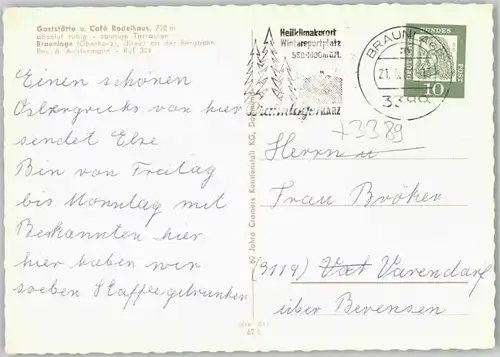 Gaststätte u. Café Rodelhaus, 720 m
absolut ruhig - sonnige Terrassen
Braunlage (Oberharz), direkt an der Bergbahn
Bes. A. Achtermann - Ruf 304
Einen schönen
Ostergruß von hier
sendet Else
Bin von Freitag
bis Montag mit
Bekannten hier
hier haben wir
soeben Kaffee getrunken
Cramers Kunstanstalt KG,
Heilklimakurort
Wintersportplatz
Braunlage HARZ
BRAUNLAGE
21.
DEUTSCHE BUNDESPOST
10
+3389
Herrn u
Frau Bröken
(3119) Varendorf
über Bevensen